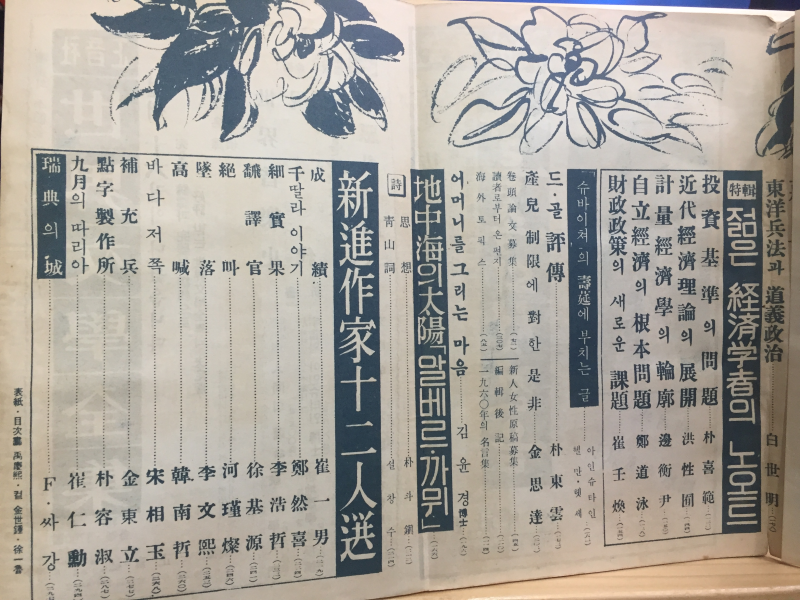 東洋兵法과 道義政治 白世明
特輯 젊은 經済学者의 노오트
投資基準의 問題 朴喜範
近代經濟理論의 展開 洪性囿
計量經濟學의 輪廓 邊衡尹
自立經濟의 根本問題 鄭道泳
財政政策의 새로운 課題 崔壬煥
슈바이쳐의 壽延에 부치는 글
아인슈타인
헬만·헷세
드·골 評傳 朴東雲
產兒制限에 對한 是非 金思達
卷頭論文募集
新人女性原稿募集
讀者로부터 온 편지
編輯後記
海外토픽스
一九六〇年의 名言集
어머니를 그리는 마음 김윤경 博士
地中海의 太陽「알베르·까뮈」
詩
思想 朴斗鎭
靑山詞 설창수
新進作家十二人選
成績 崔一男
千딸라 이야기 鄭然喜
細實果 李浩哲
飜譯官 徐基源
絕叫 河瑾燦
墜落 李文熙
高喊 韓南哲
바다저쪽 宋相玉
補充兵 金東立
點字製作所 朴容淑
九月의 따리아 崔仁勳
瑞典의 城 F·싸강
表紙·目次畵 禹慶熙·컽 金世鍾·徐一書